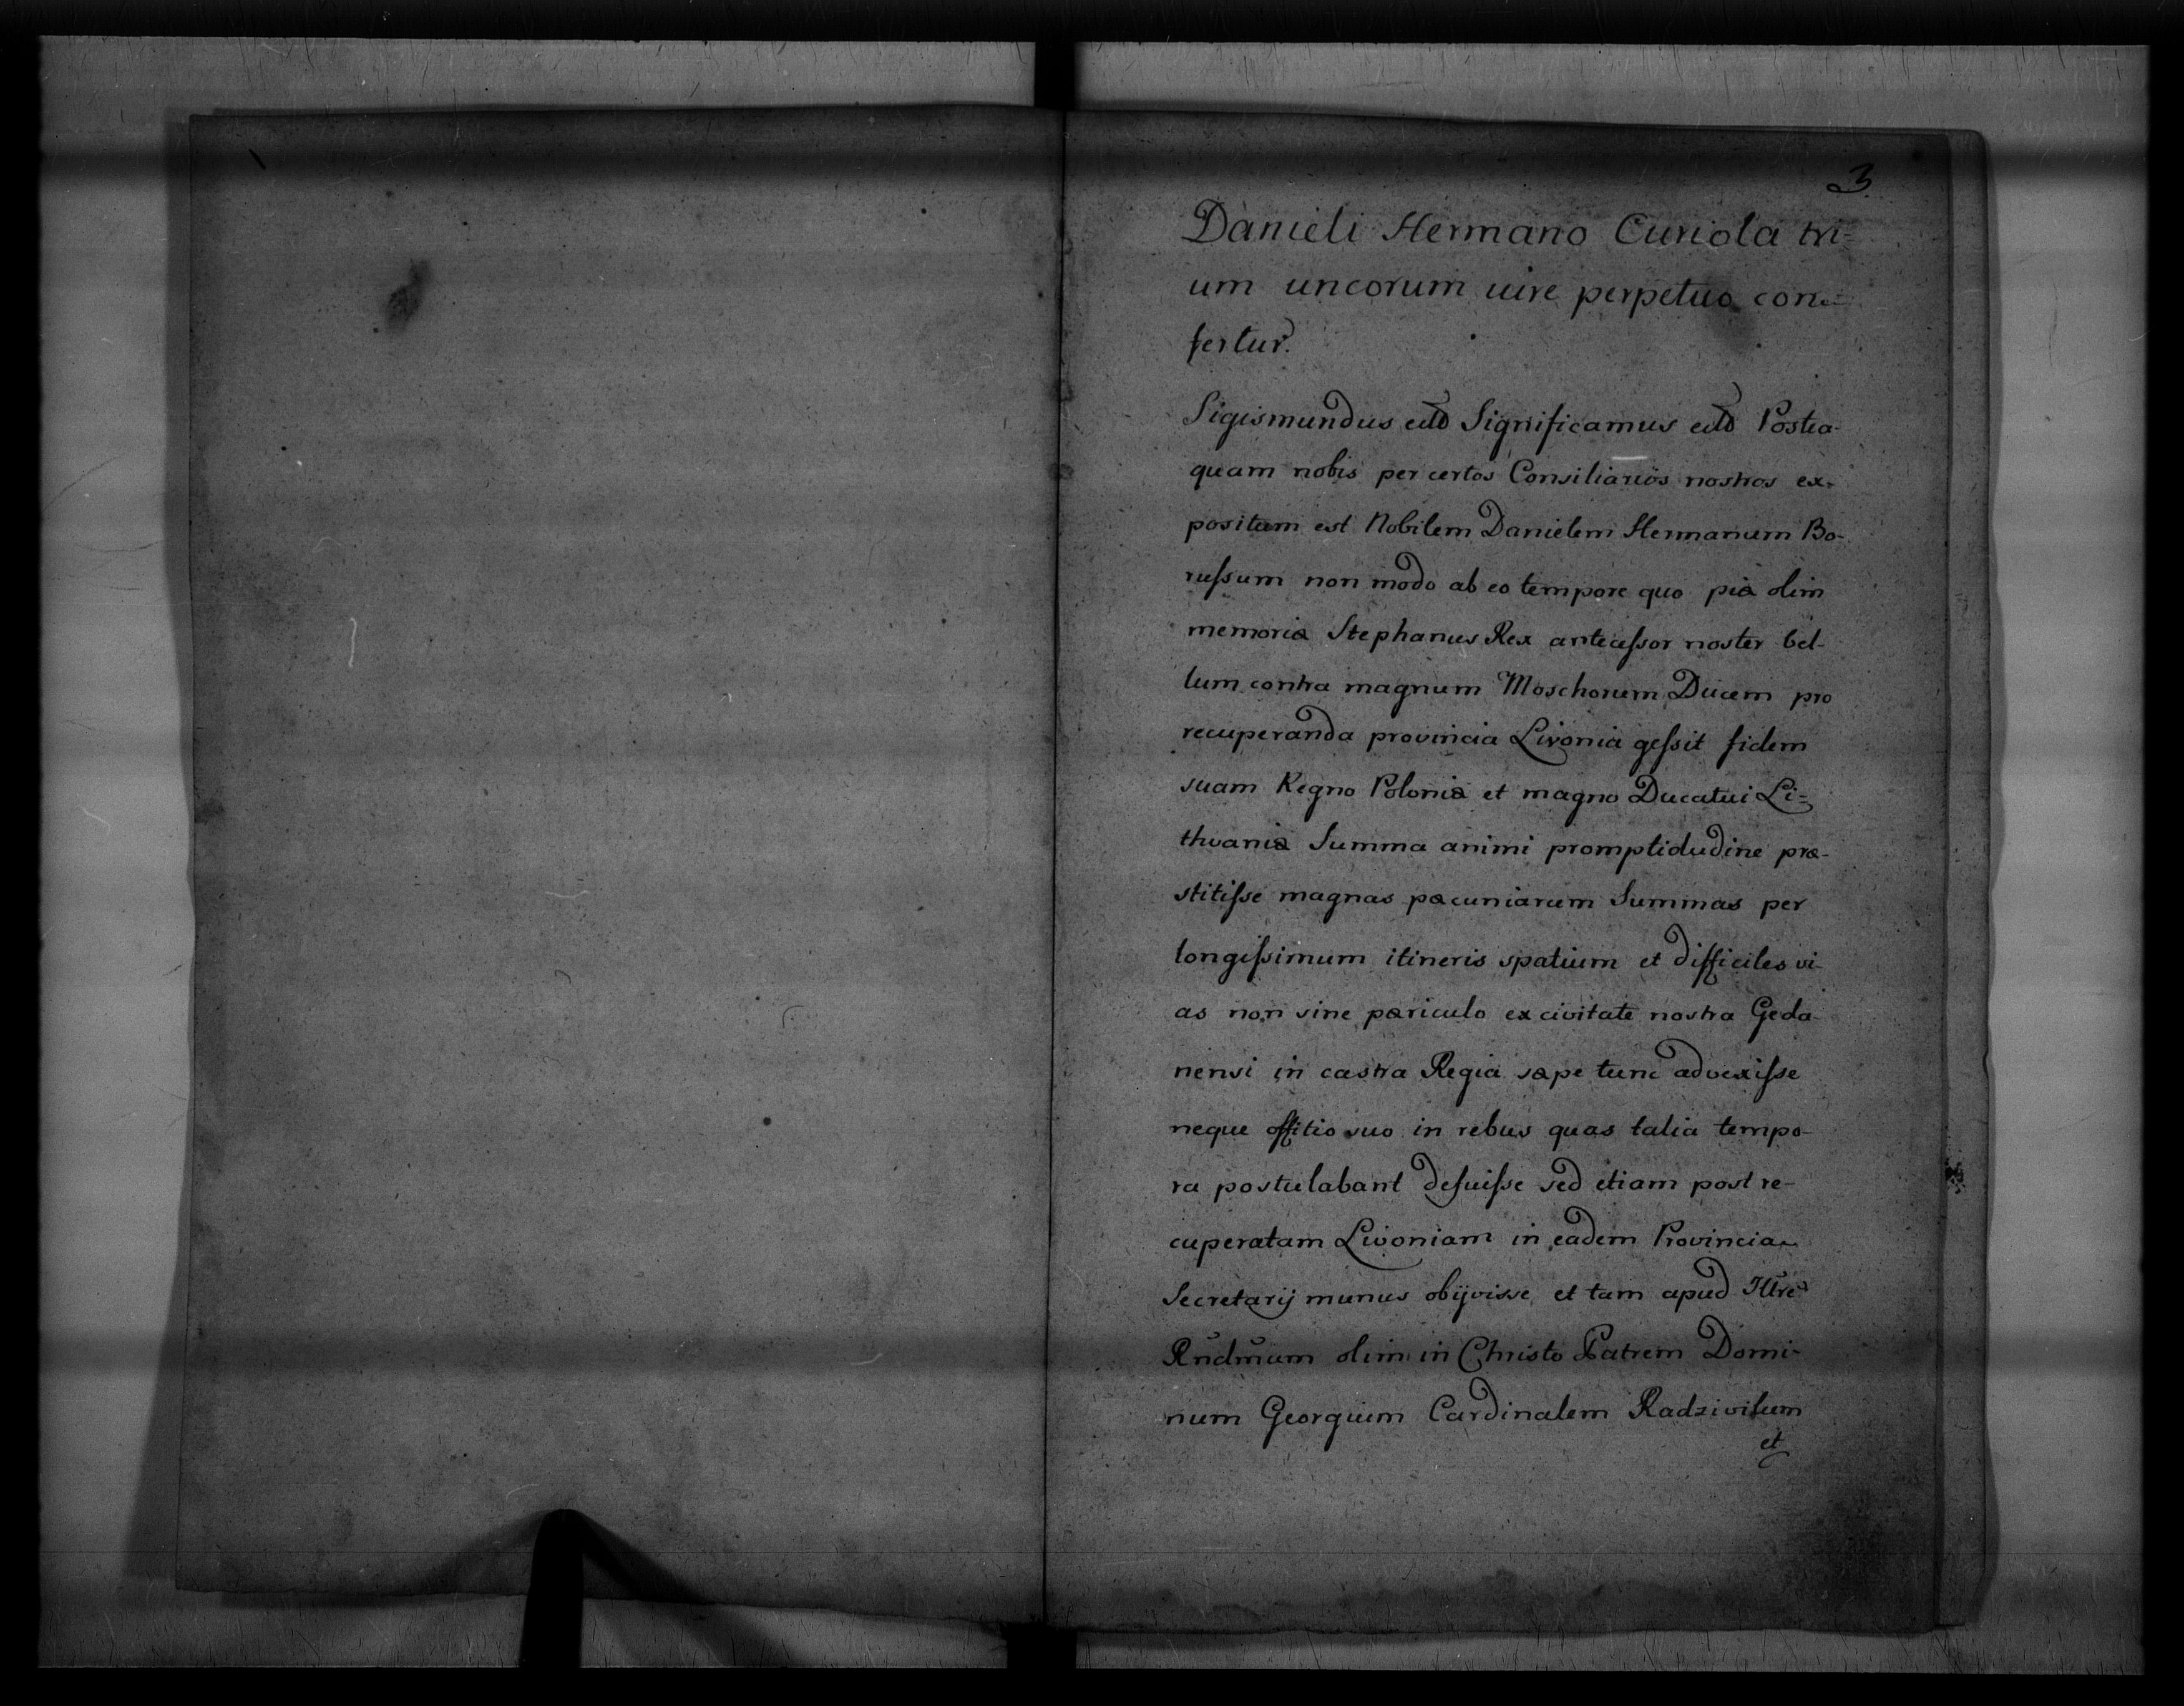 3
Danieli Hermano Curiola tri-
um uncorum iure perpetuo con-
fertur.
Sigismundus etc Significamus etc Postea-
quam nobis per certos Consiliarios nostros ex-
positum est Nobilem Danielem Hermanum Bo-
rufsum non modo ab eo tempore quo piæ olim
memoriæ Stephanus Rex antecefsor noster bel-
lum contra magnum Moschorum Ducem pro
recuperanda provincia Livonia gefsit fidem
suam Regno Poloniæ et magno Ducatui Li=
thvaniæ Summa animi promptidudine præ-
stitifse magnas pæcuniarum Summas per
longifsimum itineris spatium et difficiles vi-
as non sine pæriculo ex civitate nostra Geda-
nensi in castra Regia sæpe tunc advexifse
neque offitio suo in rebus quas talia tempo-
ra postulabant defuifse sed etiam post re-
cuperatam Livoniam in eadem Provincia
Secretarij munus obijvisse et tam apud Illre
Rndmum olim in Christo Patrem Domi-
num Georgium Cardinalem Radzivilum
et